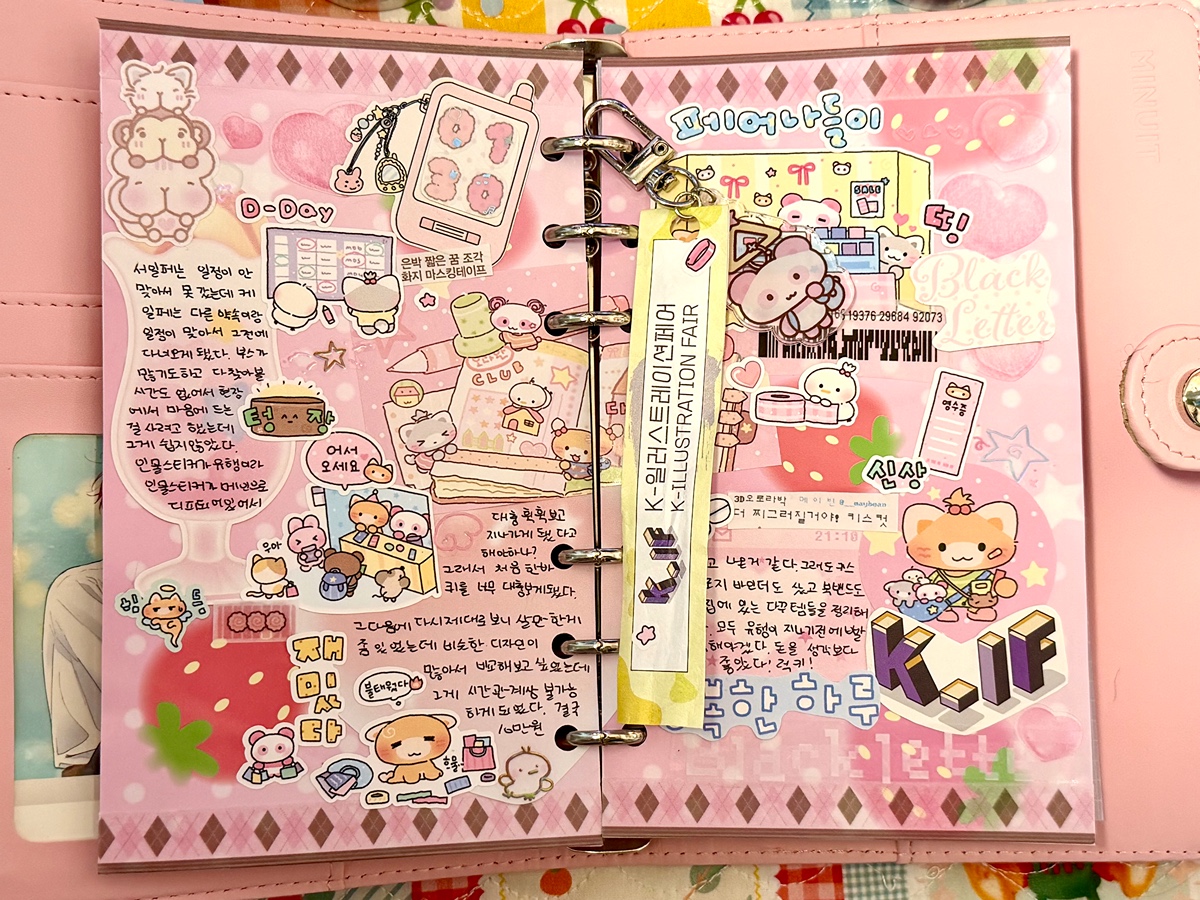 D-Day
07
30
은박 짧은 꿈 조각
화지 마스킹테이프
서일페는 일정이 안
맞아서 못 갔는데 케
일페는 다른 약속이랑
일정이 맞아서 그전에
다녀오게 됐다. 부스가
많기도하고 다 찾아볼
시간도 없어서 현장
에서 마음에 드는
걸 사려고 했는데
그게 쉽지않았다.
인물스티커가 유행이라
인물스티커가 메인으로
디피되어있어서
텅 장
CLUB
어서
오세요
우아
힘 듦
대충 휙휙보고
지나가게 됐다고
해야하나?
그래서 처음 한바
퀴를 너무 대충보게됐다.
그다음에 다시 제대로 보니 살만한게
좀 있었는데 비슷한 디자인이
많아서 비교해보고 싶었는데
그게 시간관계상 불가능
하게 되었다. 결국
10만원
재
밌
다
불태웠다
흐물
페어나들이
SALE
또!
Black
Letter
19376 29684 92073
K-일러스트레이션페어
K-ILLUSTRATION FAIR
K_IF
영수증
신상
3D오로라박 메이빈@__maybean
더 찌그러질거야! 키스컷
21:10
고 나온거 같다. 그래도 키스
바인더도 샀고 북밴드도
집에 있는 다꾸템들을 정리해
모두 유행이 지나기전에 빨
해야겠다. 돈을 생각보다
좋았다! 럭키!
K_IF
한 하루
Blacklett
MINUIT